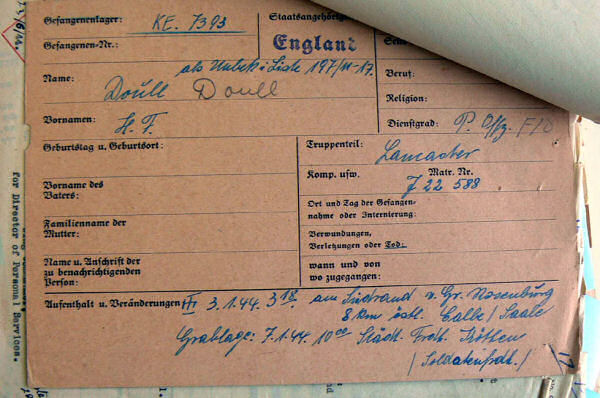 Gefangenenlager: KE. 7393
Gefangenen-Nr.:
Staatsangehörig
England
Name: als Unbek. i. Liste 197/
Doull Doull
Vornamen: H. F.
Beruf:
Religion:
Dienstgrad: P. Offz. F/O
Geburtstag u. Geburtsort:
Truppenteil: Lancaster
Komp. usw. Matr. Nr.
J 22 588
Vorname des
Vaters:
Ort und Tag der Gefangen-
nahme oder Internierung:
Familienname der
Mutter:
Verwundungen,
Verletzungen oder Tod:
Name u. Anschrift der
zu benachrichtigenden
Person:
wann und von
wo zugegangen:
Aufenthalt u. Veränderungen: 3.1.44. 3 18 am Südrand v. Gr. Rosenburg
8 km östl. Calbe / Saale
Grablage: 7.1.44 10 00 Städt. Frdh. Köthen
/ Soldatenfrdh. /
17
for Director of Personal Services.